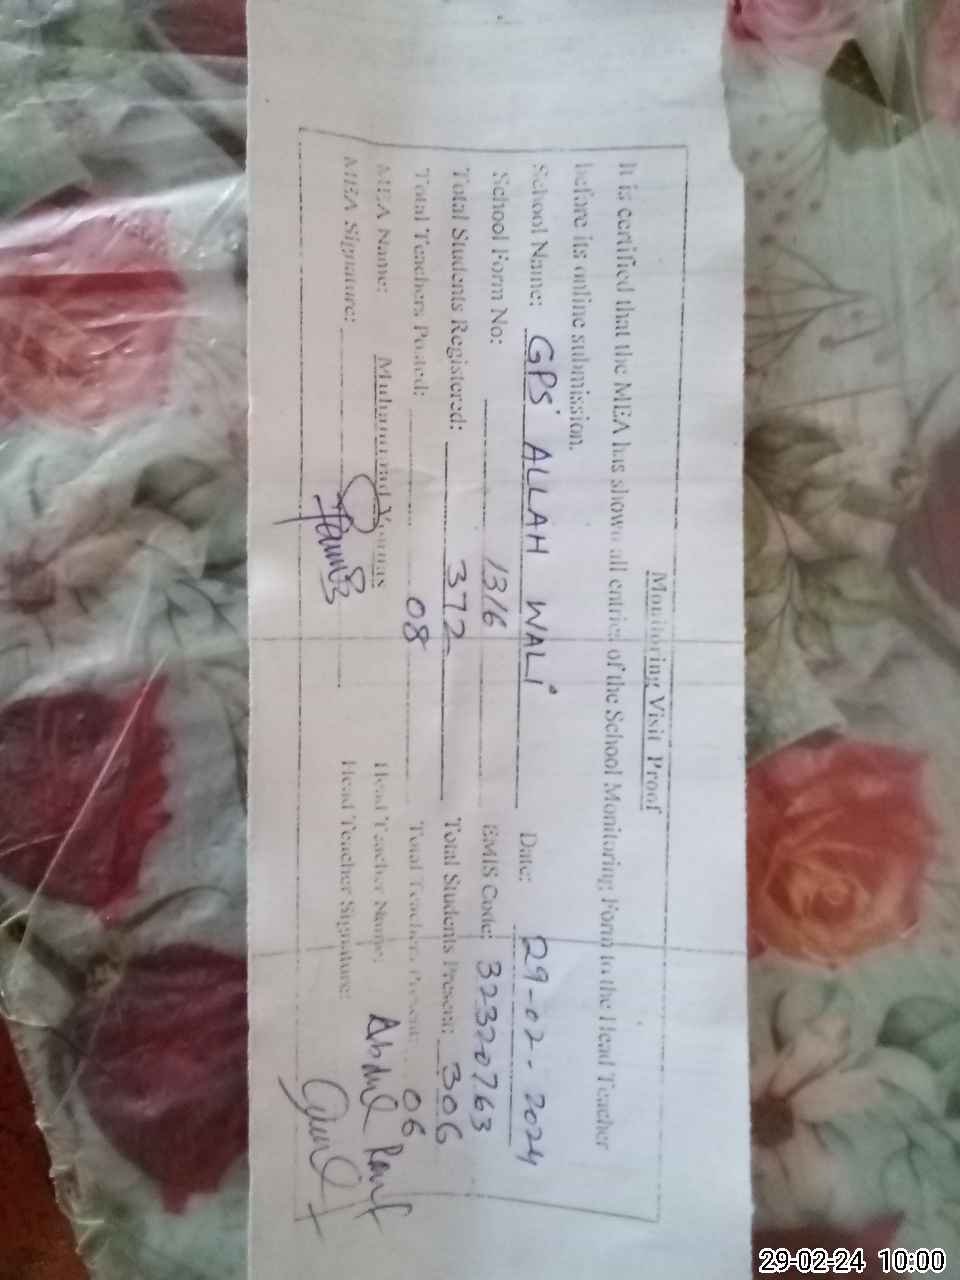 Monitoring Visit Proof
It is certified that the MEA has shown all entries of the School Monitoring Form to the Head Teacher
before its online submission.
School Name: GPS ALLAH WALI Date: 29-02-2024
School Form No: 1316 EMIS Code: 32320763
Total Students Registered: 372 Total Students Present: 306
Total Teachers Posted: 08 Total Teachers Present: 06
MEA Name: Muhammad Younas Head Teacher Name: Abdul Rauf
MEA Signature: Head Teacher Signature:
29-02-24 10:00